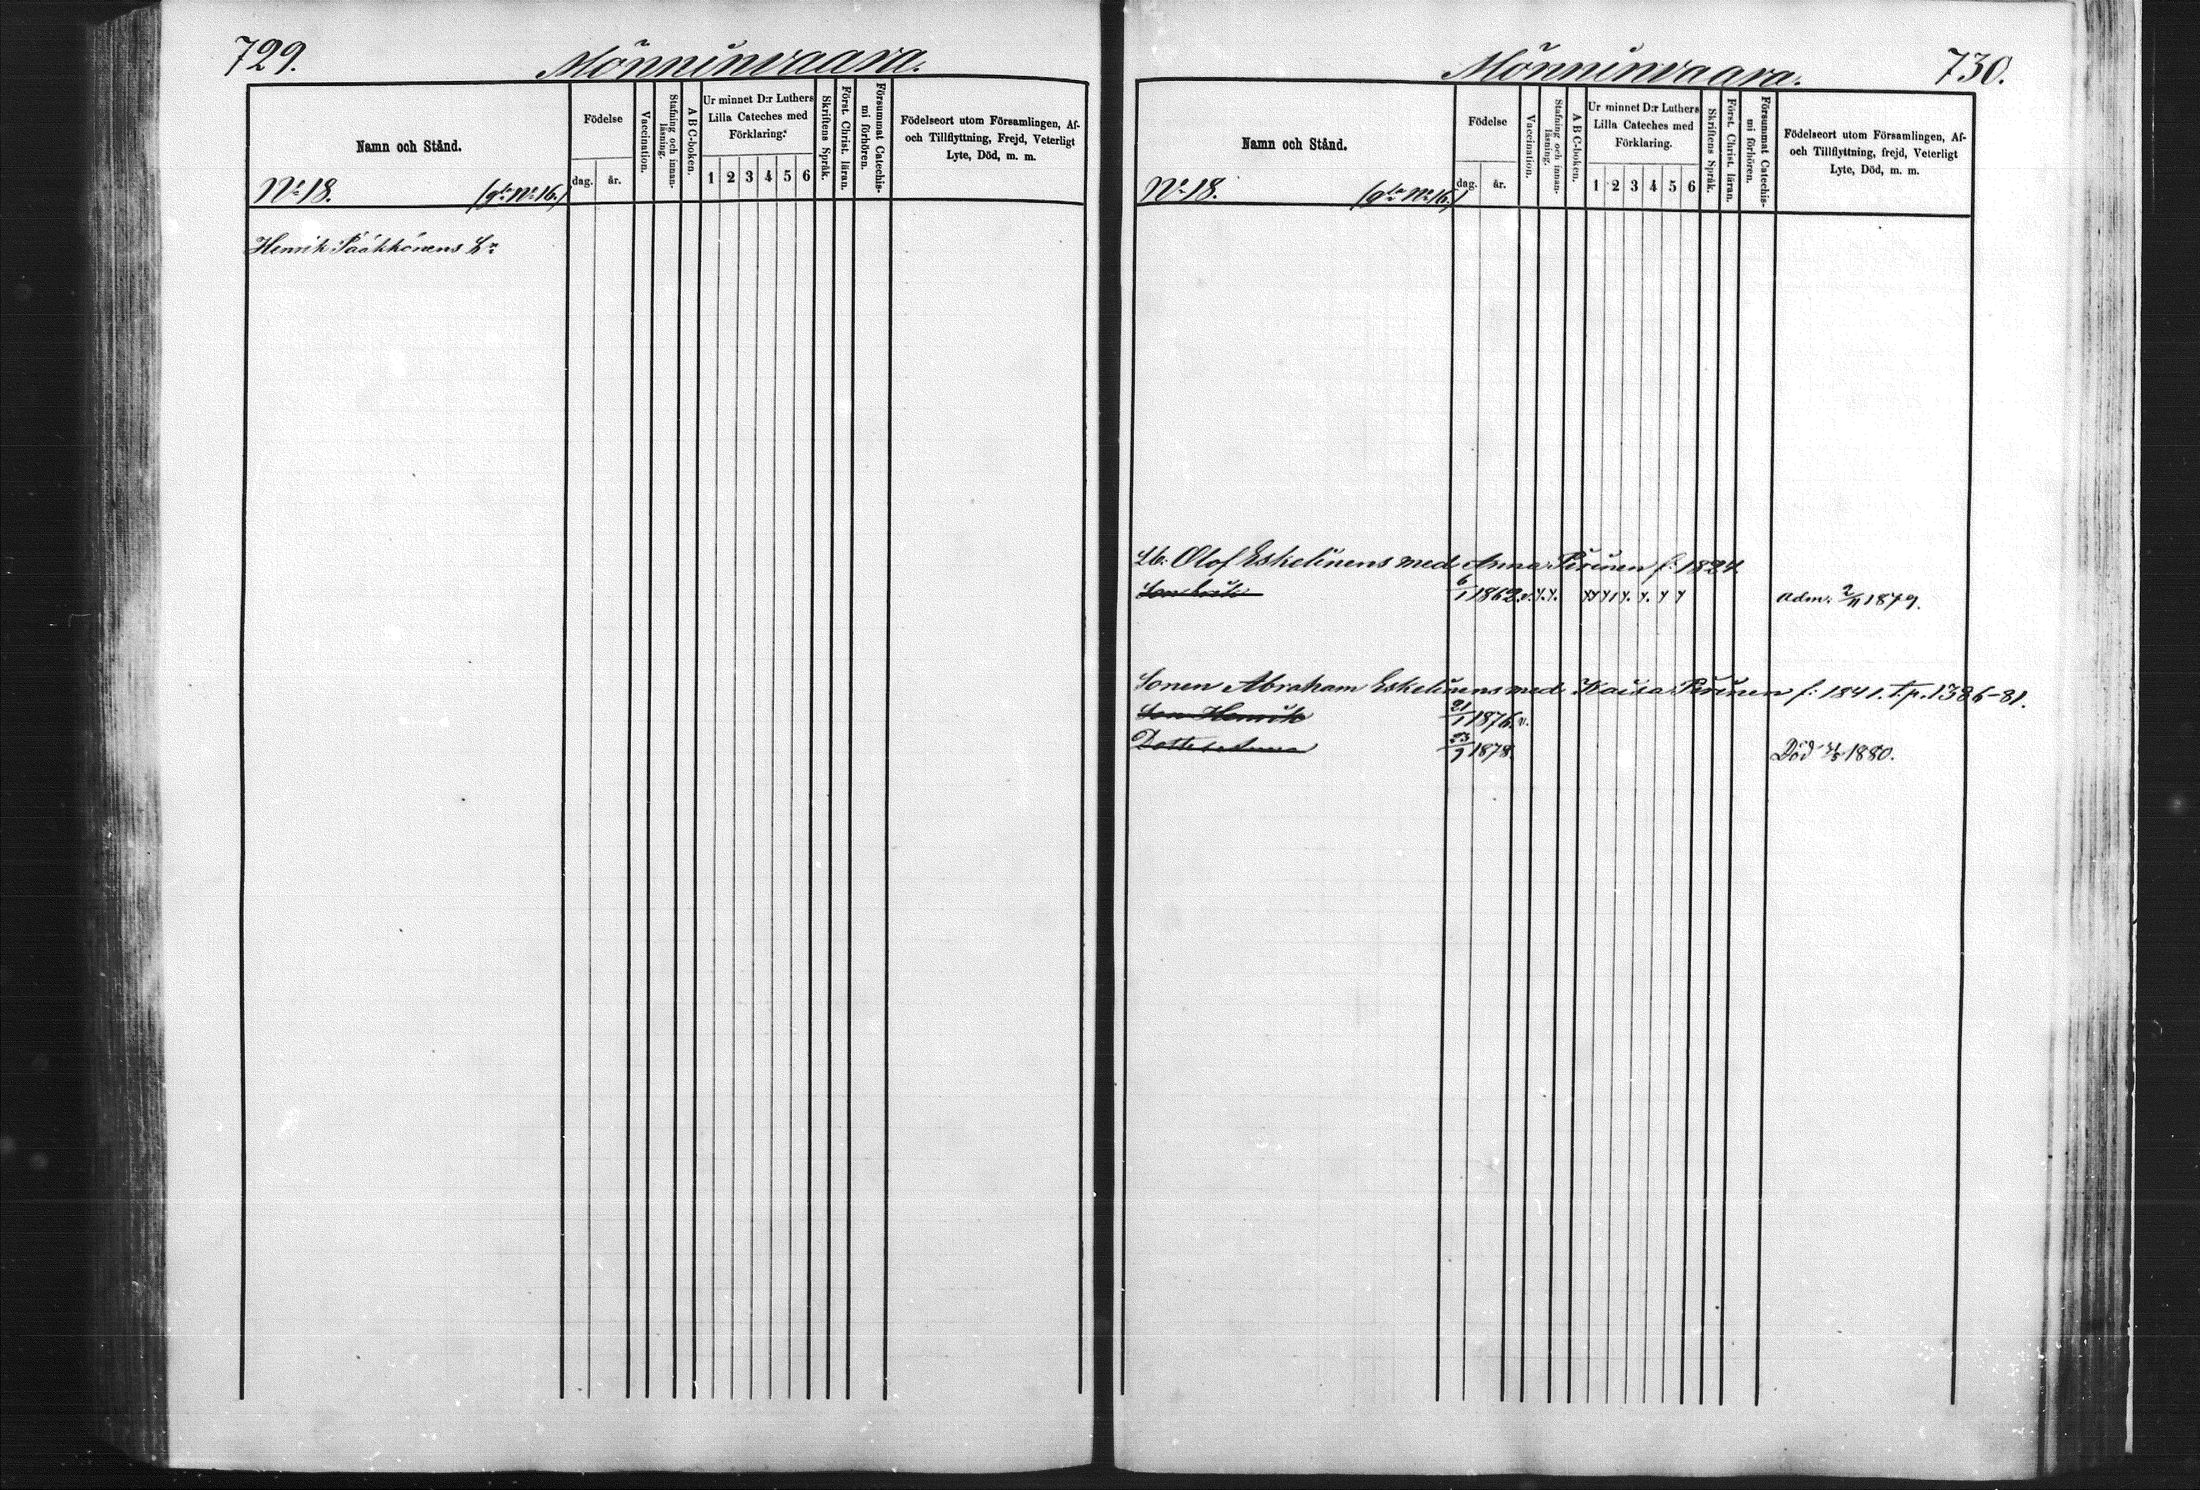 729.
Mönninvaara.
Namn och Stånd.
Födelse
dag. år.
Vaccination.
Stafning och innan-
läsning.
A B C-boken.
Ur minnet D:r Luthers
Lilla Cateches med
Förklaring.
1 2 3 4 5 6
Skriftens Språk.
Först. Christ. läran.
Försummat Catechis-
mi förhören.
Födelseort utom Församlingen, Af-
och Tillflyttning, Frejd, Veterligt
Lyte, Död, m. m.
No 18. (gla No 16.)
Henrik Pääkkönens
Mönninvaara.
730.
Namn och Stånd.
Födelse
dag. år.
Vaccination.
Stafning och innan-
läsning.
A B C-boken.
Ur minnet D:r Luthers
Lilla Cateches med
Förklaring.
1 2 3 4 5 6
Skriftens Språk.
Först. Christ. läran.
Försummat Catechis-
mi förhören.
Födelseort utom Församlingen, Af-
och Tillflyttning, frejd, Veterligt
Lyte, Död, m. m.
No 18. (gla No 16.)
Lb: Olof Eskelinens med Anna Piirinen f: 1824
Son 6/1 1862. v. Adm. 2/11 1879.
Sonen Abraham Eskelinens med Kaisa Piirinen f: 1841. T. p. 1386-81.
Son Henrik 21/1 1876. v.
Dotter Anna 23/7 1878. Död 1880.